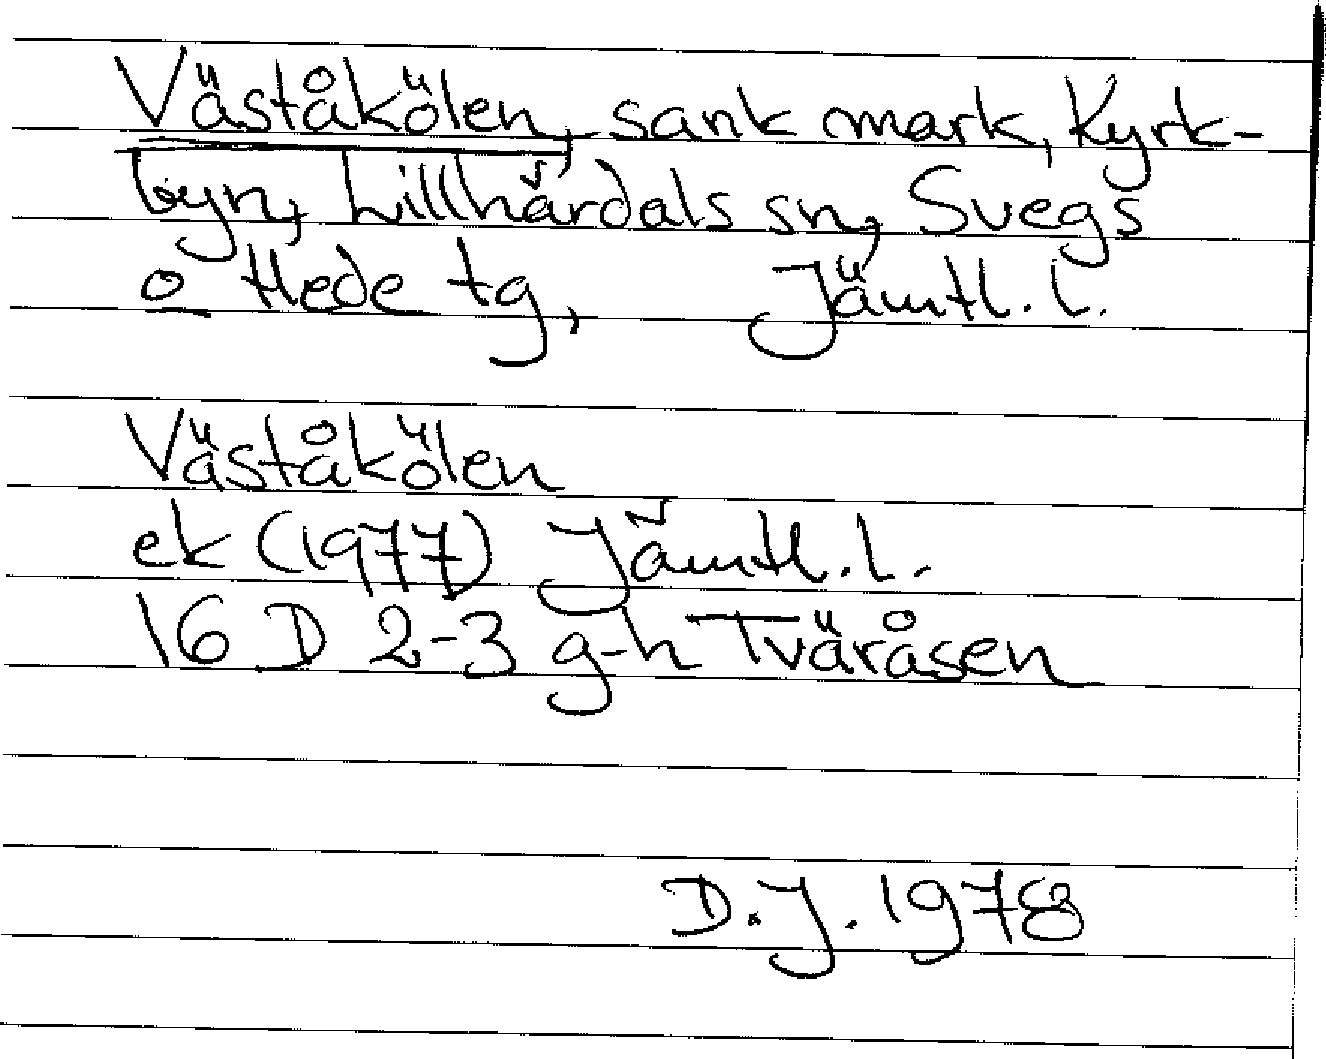 Väståkölen, sank mark, Kyrk-
byn, Lillhärdals sn, Svegs
o Hede tg, Jämtl. l.
Väståkölen
ek (1977) Jämtl. l.
16 D 2-3 g-h Tväråsen
D.J. 1978